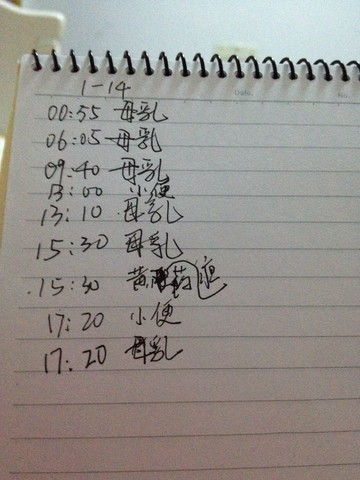 Date.
No.
1-14
00:55 母乳
06:05 母乳
09:40 母乳
13:00 小便
13:10 母乳
15:30 母乳
15:30 黄药
17:20 小便
17:20 母乳